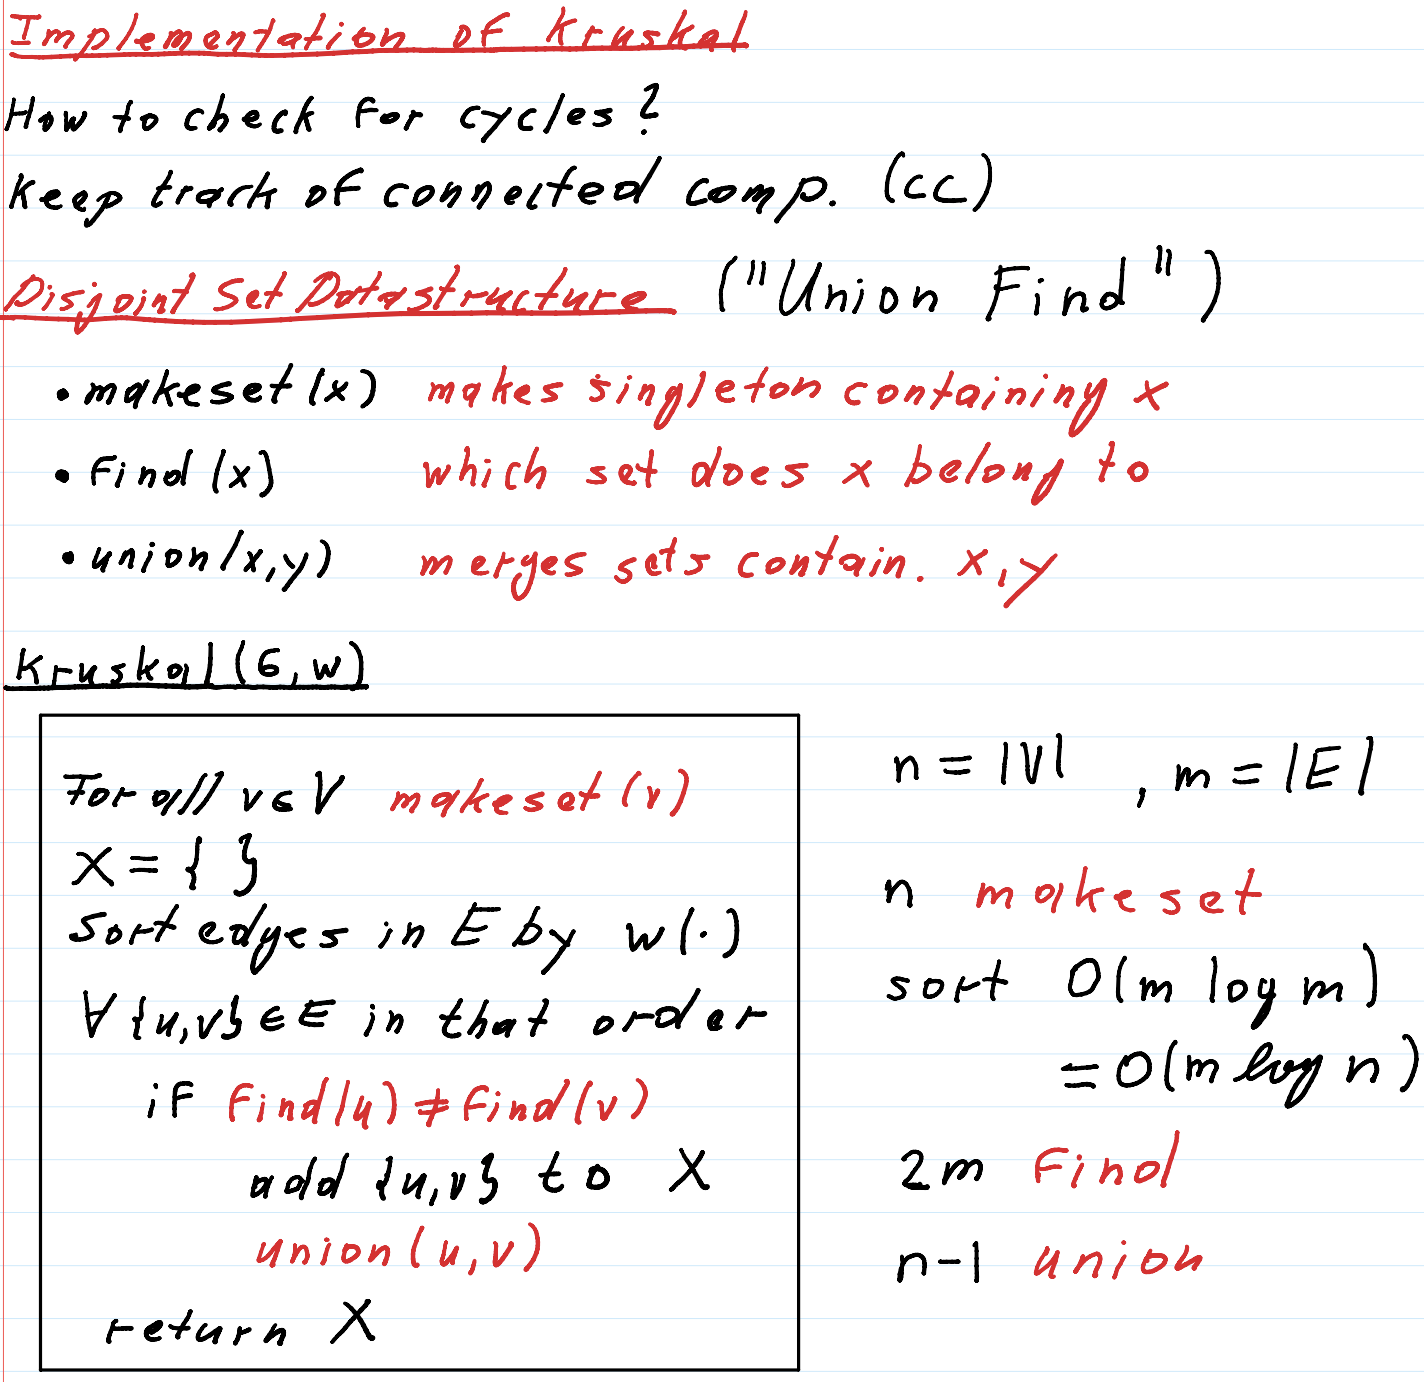 Implementation of Kruskal
How to check for cycles?
Keep track of connected comp. (CC)
Disjoint Set Datastructure ("Union Find")
• makeset(x) makes singleton containing x
• Find(x) which set does x belong to
• union(x,y) merges sets contain. x,y
Kruskal(G,w)
For all v∈V makeset(v)
X = { }
Sort edges in E by w(·)
∀ {u,v} ∈ E in that order
if Find(u) ≠ Find(v)
add {u,v} to X
union(u,v)
return X
n = |V| , m = |E|
n makeset
sort O(m log m)
= O(m log n)
2m Find
n-1 union